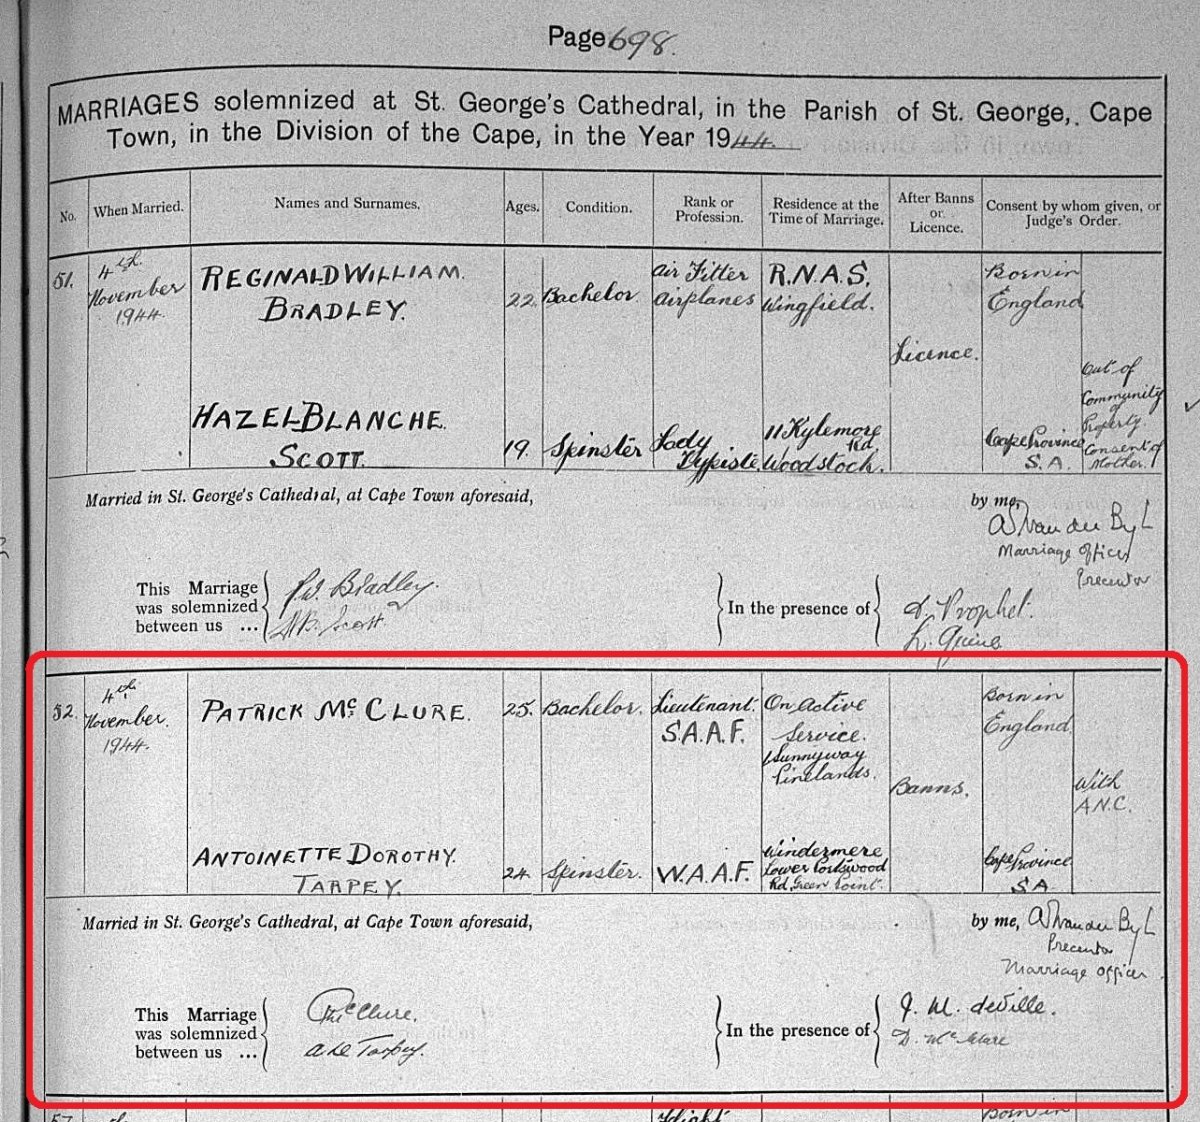 Page 698.
MARRIAGES solemnized at St. George's Cathedral, in the Parish of St. George, Cape
Town, in the Division of the Cape, in the Year 1944.
No. When Married. Names and Surnames. Ages. Condition. Rank or Profession. Residence at the Time of Marriage. After Banns or Licence. Consent by whom given, or Judge's Order.
51. 4th November 1944.
REGINALD WILLIAM
BRADLEY.
22. Bachelor
Air Fitter
Airplanes
R.N.A.S.
Wingfield.
Born in
England
Licence.
Out of
Community
of
Property.
Consent of
Mother.
HAZEL BLANCHE
SCOTT.
19. Spinster
Lady
Typiste
11 Kylemore
Rd
Woodstock.
Cape Province
S.A.
Married in St. George's Cathedral, at Cape Town aforesaid,
by me,
van der Byl
Marriage Officer
Precentor
This Marriage
was solemnized
between us ...
Bradley
H.B. Scott
In the presence of
Prophet.
52. 4th November. 1944.
PATRICK McCLURE.
25. Bachelor.
Lieutenant.
S.A.A.F.
On Active
Service.
1 Sunnyway
Pinelands.
Born in
England
Banns.
With
A.N.C.
ANTOINETTE DOROTHY.
TARPEY.
24. Spinster.
W.A.A.F.
Windermere
Lower Portswood
Rd, Green Point.
Cape Province
S A
Married in St. George's Cathedral, at Cape Town aforesaid,
by me, van der Byl
Precentor
Marriage Officer
This Marriage
was solemnized
between us ...
P McClure.
Tarpey.
In the presence of
J. M. deVille.
D. McClure
Flight
Born in